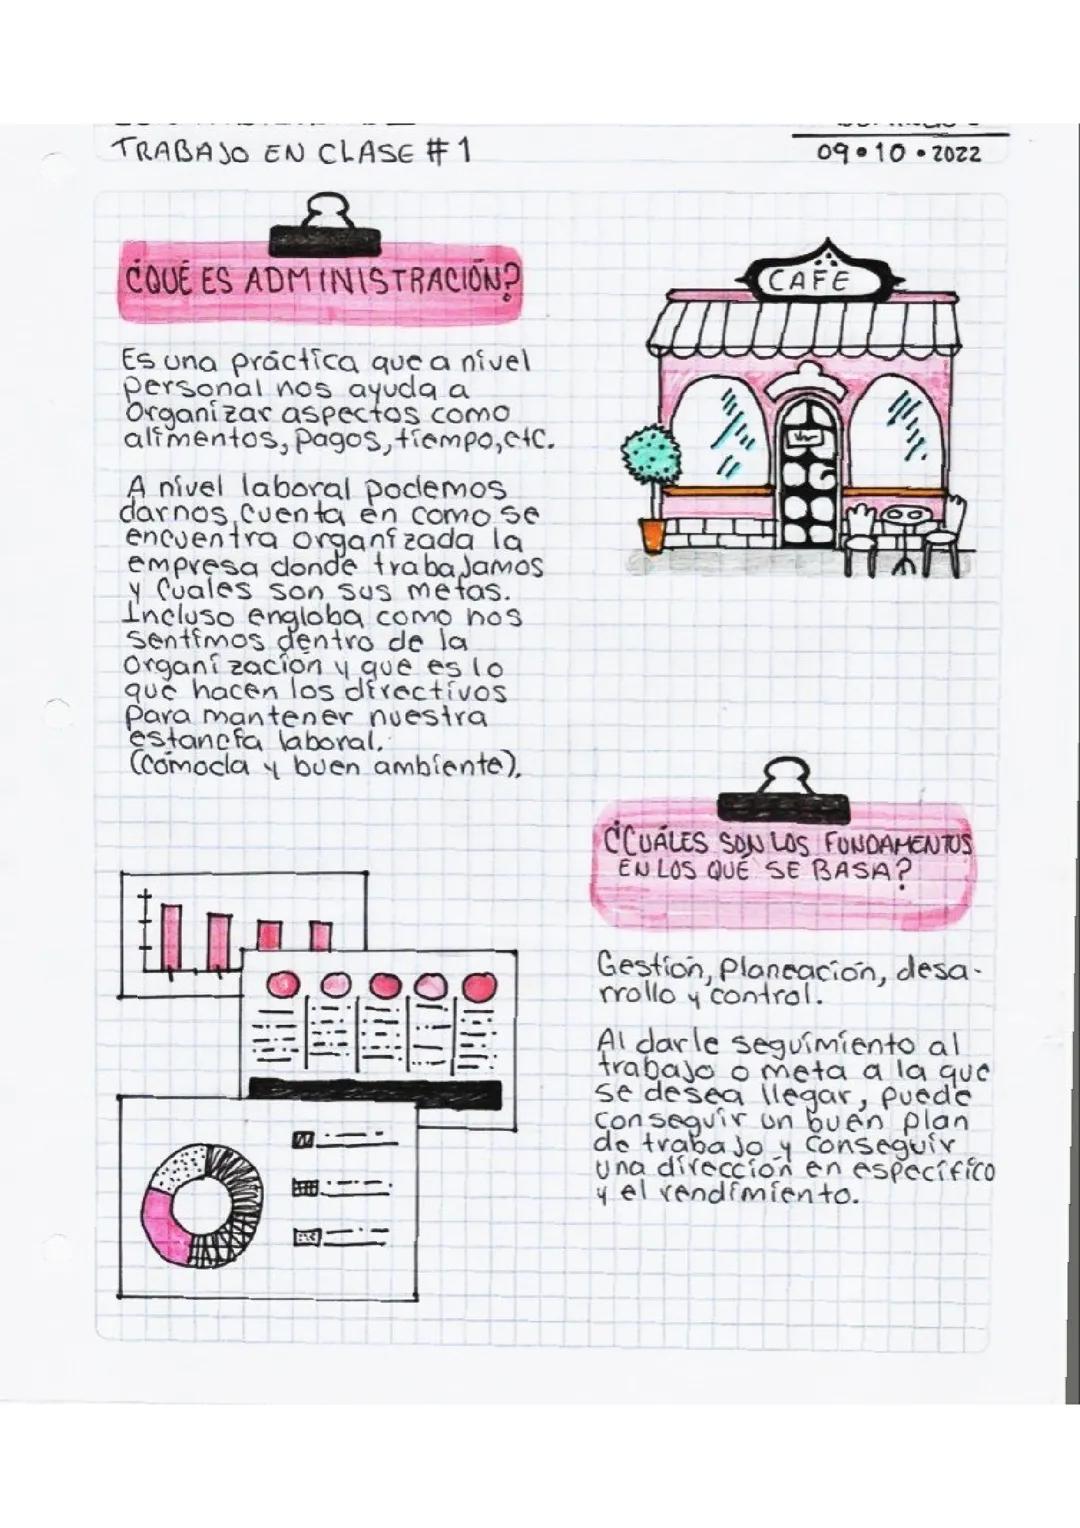 TRABAJO EN CLASE #1
09•10•2022
¿QUÉ ES ADMINISTRACIÓN?
Es una práctica que a nivel
personal nos ayuda a
Organizar aspectos como
alimentos, pagos, tiempo, etc.
A nivel laboral podemos
darnos cuenta en como se
encuentra organizada la
empresa donde trabajamos
y Cuales son sus metas.
Incluso engloba como nos
sentimos dentro de la
organización y que es lo
que hacen los directivos
para mantener nuestra
estancia laboral.
(Cómoda y buen ambiente).
CAFE
¿CUÁLES SON LOS FUNDAMENTOS
EN LOS QUÉ SE BASA?
Gestión, Planeación, desa-
rrollo y control.
Al darle seguimiento al
trabajo o meta a la que
se desea llegar, puede
conseguir un buen plan
de trabajo y conseguir
una dirección en específico
y el rendimiento.